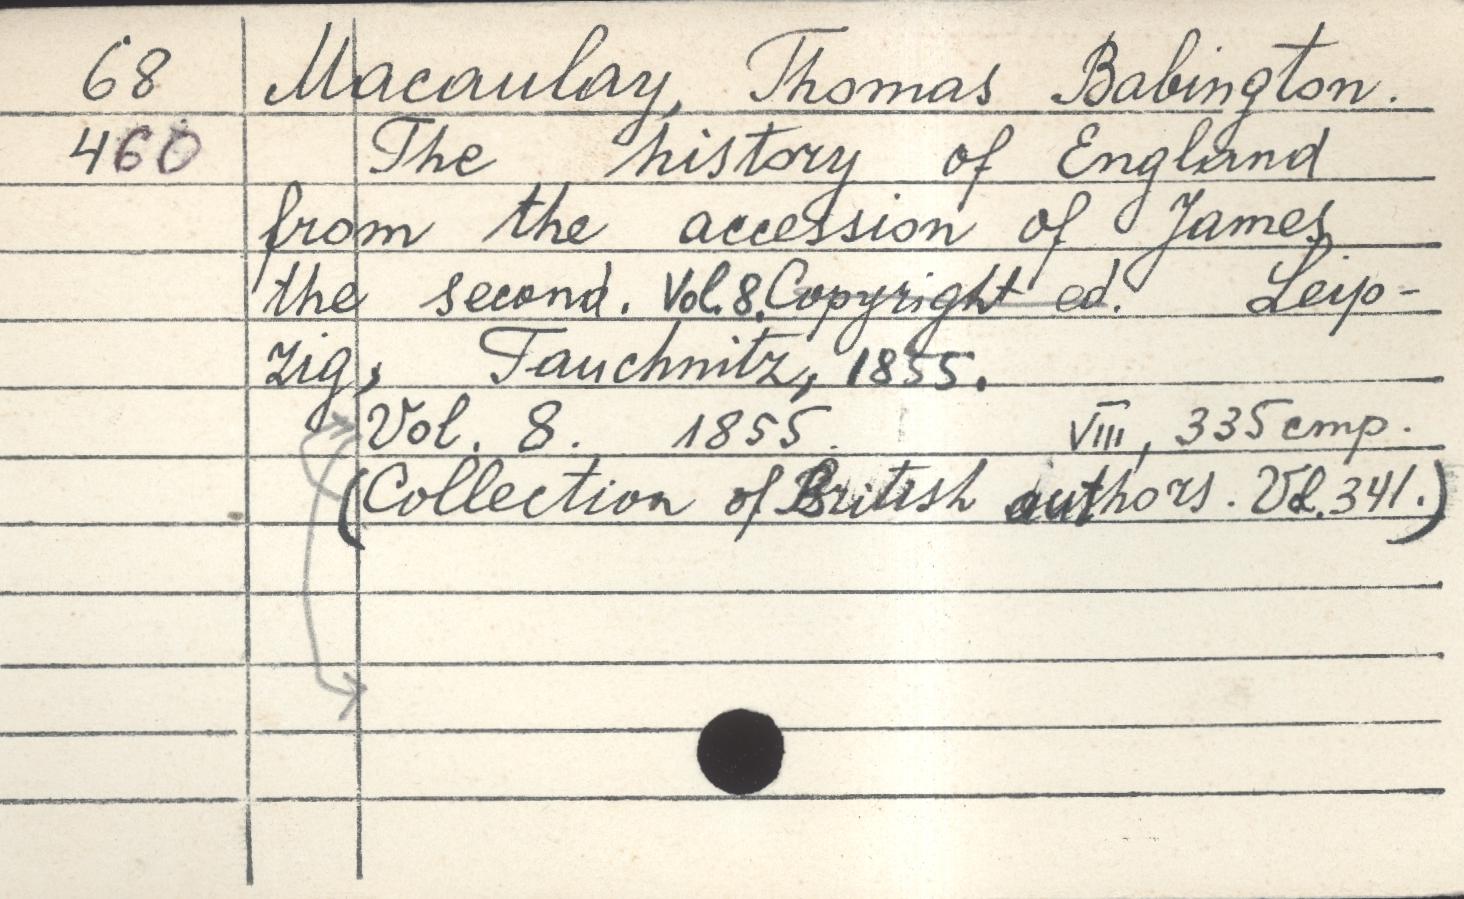 68 Macaulay, Thomas Babington.
460 The history of England
from the accession of James
the second. Vol. 8. Copyright ed. Leip-
zig, Tauchnitz, 1855.
Vol. 8. 1855. VIII, 335 cmp.
(Collection of British authors. Vol. 341.)